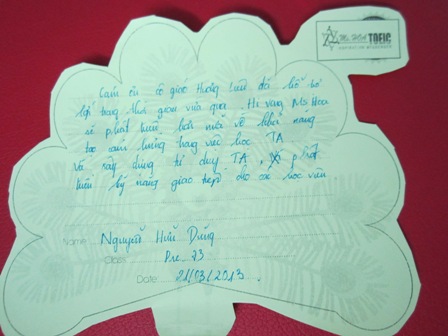 Ms. Hoa TOEIC
Cám ơn cô giáo Hương Lưu đã hỗ trợ
lớp trong thời gian vừa qua. Hi vọng Ms Hoa
sẽ phát triển hơn nữa về khả năng
tạo cảm hứng trong việc học TA
Và xây dựng tư duy TA, phát
triển kỹ năng giao tiếp cho các học viên
Name: Nguyễn Hữu Dũng
Class: Pre_73
Date: 21/03/2013.